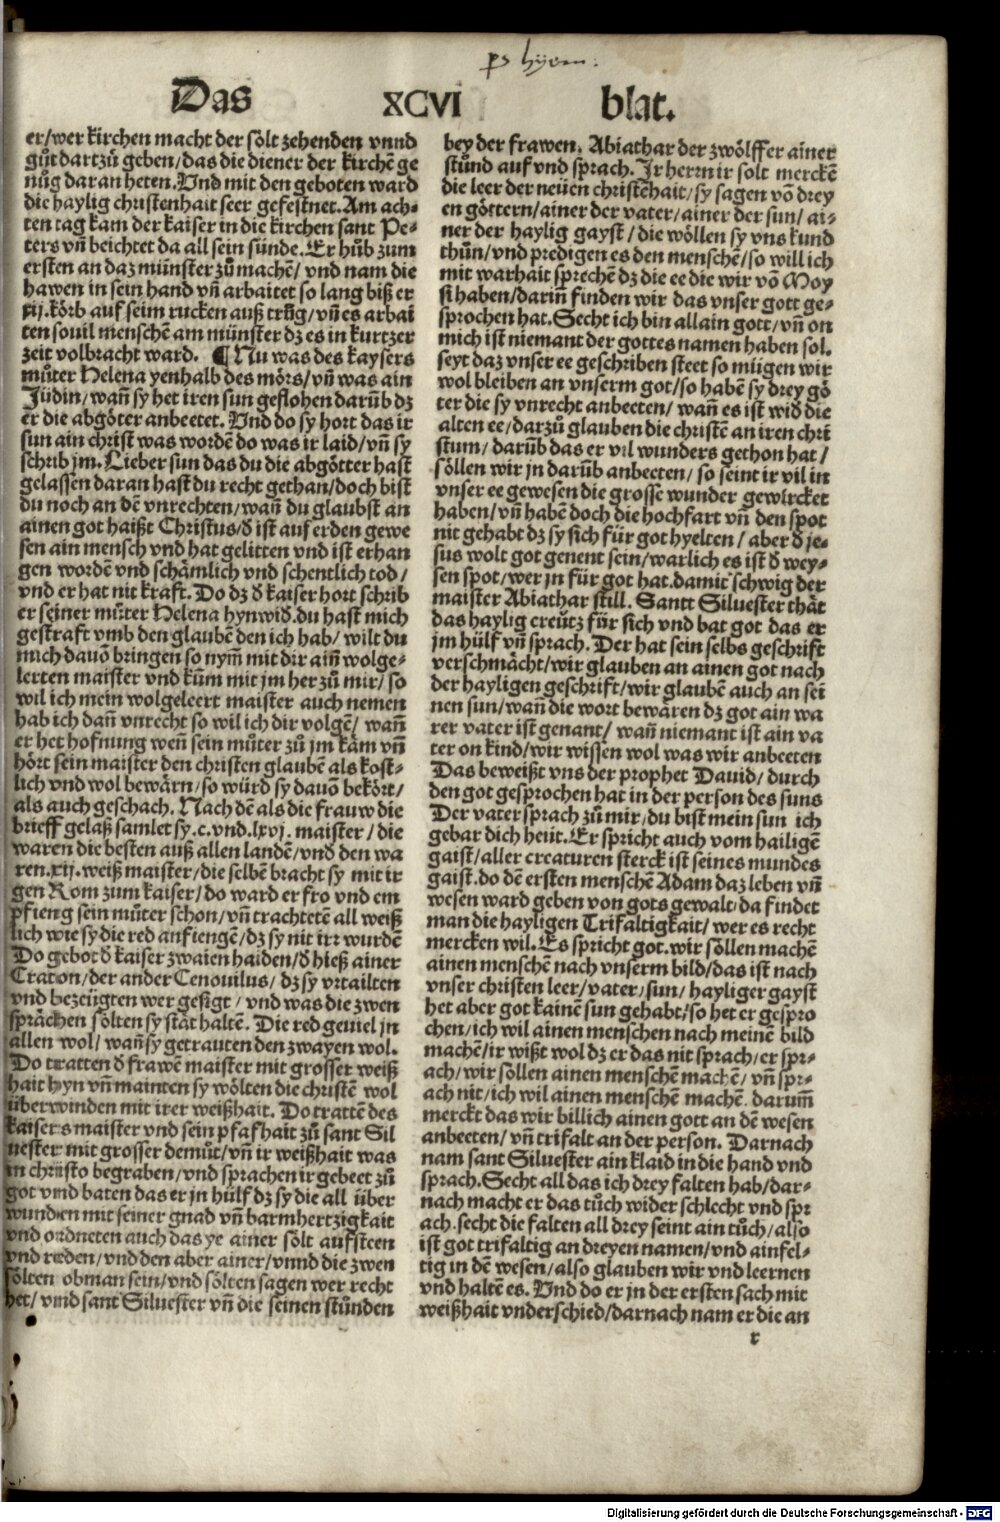 Das XCVI blat.
er/wer kirchen macht der solt zehenden vnnd
gůt dartzů geben/das die diener der kirchē ge
nůg daran heten. Vnd mit den geboten ward
die haylig christenhait seer gefestnet. Am ach-
ten tag kam der kaiser in die kirchen sant Pe-
ters vñ beichtet da all sein sünde. Er hůb zum
ersten an daz münster zů machē/ vnd nam die
hawen in sein hand vñ arbaitet so lang biß er
xij. körb auf seim rucken auß trůg/vñ es arbai
ten souil menschē am münster dz es in kurtzer
zeit volbracht ward. ¶ Nu was des kaysers
můter Helena yenhalb des mörs/vñ was ain
Jüdin/wañ sy het iren sun geflohen darūb dz
er die abgöter anbeetet. Vnd do sy hort das ir
sun ain christ was wordē do was ir laid/vñ sy
schrib jm. Lieber sun das du die abgötter hast
gelassen daran hast du recht gethan/doch bist
du noch an dē vnrechten/wañ du glaubst an
ainen got haißt Christus/d ist auf erden gewe
sen ain mensch vnd hat gelitten vnd ist erhan
gen wordē vnd schämlich vnd schentlich tod/
vnd er hat nit kraft. Do dz d kaiser hort schrib
er seiner můter Helena hynwid. du hast mich
gestraft vmb den glaubē den ich hab/ wilt du
mich dauō bringen so nym̄ mit dir ain̄ wolge-
lerten maister vnd kūm mit jm her zů mir/ so
wil ich mein wolgeleert maister auch nemen
hab ich dañ vnrecht so wil ich dir volgē/ wañ
er het hofnung weñ sein můter zů jm käm vñ
hört sein maister den christen glaubē als kost-
lich vnd wol bewärn/so würd sy dauō bekört/
als auch geschach. Nach dē als die frauw die
brieff gelaß samlet sy .c. vnd .lxvj. maister/die
waren die besten auß allen landē/vnd den wa
ren .xij. weiß maister/die selbē bracht sy mit ir
gen Rom zum kaiser/do ward er fro vnd em
pfieng sein můter schon/vñ trachtetē all weiß
lich wie sy die red anfiengē/dz sy nit irr wurdē
Do gebot d kaiser zwaien haiden/d hieß ainer
Craton/der ander Cenouilus/ dz sy vrtailten
vnd bezeügten wer gesigt/ vnd was die zwen
sprächen solten sy stät haltē. Die red geuiel jn
allen wol/ wañ sy getrauten den zwayen wol.
Do tratten d frawē maister mit grosser weiß
hait hyn vñ mainten sy wölten die christē wol
überwinden mit irer weißhait. Do trattē des
kaisers maister vnd sein pfafhait zů sant Sil
uester mit grosser demůt/vñ ir weißhait was
in christo begraben/vnd sprachen ir gebeet zů
got vnd baten das er jn hülf dz sy die all über
wunden mit seiner gnad vñ barmhertzigkait
vnd ordneten auch das ye ainer solt aufsteen
vnd reden/vnd den aber ainer/vnnd die zwen
sölten obman sein/vnd sölten sagen wer recht
het/ vnd sant Siluester vñ die seinen stůnden
bey der frawen. Abiathar der zwölffer ainer
stůnd auf vnd sprach. Ir herrn ir solt merckē
die leer der neüen christēhait/sy sagen vō drey
en göttern/ainer der vater/ainer der sun/ ai-
ner der haylig gayst/die wöllen sy vns kund
thůn/vnd predigen es den menschē/so will ich
mit warhait sprechē dz die ee die wir vō Moy
si haben/dariñ finden wir das vnser gott ge-
sprochen hat. Secht ich bin allain gott/vñ on
mich ist niemant der gottes namen haben sol.
seyt daz vnser ee geschriben steet so mügen wir
wol bleiben an vnserm got/so habē sy drey gö
ter die sy vnrecht anbeeten/ wañ es ist wid die
alten ee/darzů glauben die christē an iren chri
stum/ darūb das er vil wunders gethon hat/
söllen wir jn darūb anbeeten/ so seint ir vil in
vnser ee gewesen die grosse wunder gewircket
haben/vñ habē doch die hochfart vñ den spot
nit gehabt dz sy sich für got hyelten/ aber d je-
sus wolt got genent sein/warlich es ist d wey-
sen spot/wer jn für got hat. damit schwig der
maister Abiathar still. Santt Siluester thät
das haylig creütz für sich vnd bat got das er
jm hülf vñ sprach. Der hat sein selbs geschrift
verschmächt/wir glauben an ainen got nach
der hayligen geschrift/wir glaubē auch an sei
nen sun/wañ die wort bewären dz got ain wa
rer vater ist genant/ wañ niemant ist ain va
ter on kind/wir wissen wol was wir anbeeten
Das beweißt vns der prophet Dauid/ durch
den got gesprochen hat in der person des suns
Der vater sprach zů mir/du bist mein sun ich
gebar dich heüt. Er spricht auch vom hailigē
gaist/aller creaturen sterck ist seines mundes
gaist. do dē ersten menschē Adam daz leben vñ
wesen ward geben von gots gewalt/da findet
man die hayligen Trifaltigkait/ wer es recht
mercken wil. Es spricht got. wir söllen machē
ainen menschē nach vnserm bild/das ist nach
vnser christen leer/vater/sun/ hayliger gayst
het aber got kainē sun gehabt/so het er gespro
chen/ich wil ainen menschen nach meinē bild
machē/ir wißt wol dz er das nit sprach/er spr-
ach/wir söllen ainen menschē machē/ vñ spr-
ach nit/ich wil ainen menschē machē. darum̄
merckt das wir billich ainen gott an dē wesen
anbeeten/ vñ trifalt an der person. Darnach
nam sant Siluester ain klaid in die hand vnd
sprach. Secht all das ich drey falten hab/dar-
nach macht er das tůch wider schlecht vnd spr
ach. secht die falten all drey seint ain tůch/also
ist got trifaltig an dreyen namen/vnd ainfel-
tig in dē wesen/also glauben wir vnd leernen
vnd haltē es. Vnd do er jn der ersten sach mit
weißhait vnderschied/darnach nam er die an
r
Digitalisierung gefördert durch die Deutsche Forschungsgemeinschaft - DFG